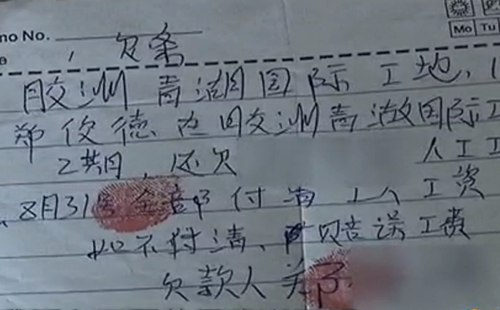 no No.
Mo Tu
欠条
胶洲青湖国际工地,
郑俊德在胶洲青湖国际工
共日,还欠 人工工
8月31号全部付清工人工资
如不付清、赔误工费
欠款人关